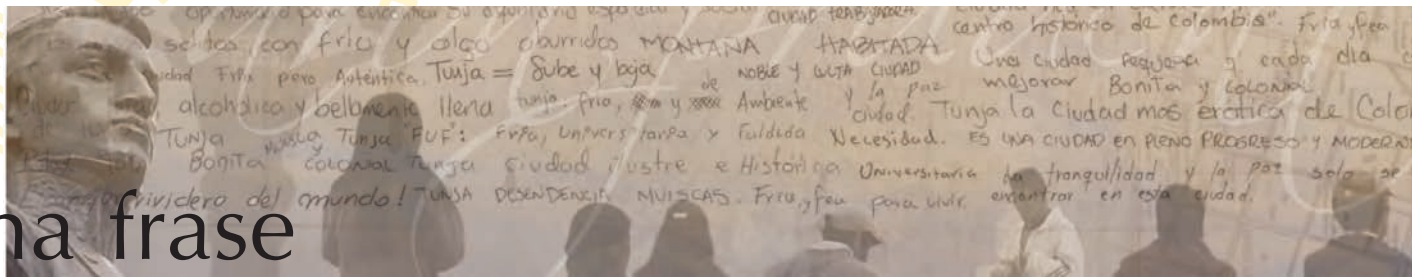 oportuno para encontrar su equilibrio espacial y CIUDAD TRABAJADORA
centro histórico de Colombia". Fría y fea
salidas, con frío y algo aburridos MONTAÑA HABITADA Una ciudad pequeña y cada día
Ciudad Fría pero Auténtica. Tunja = Sube y baja de NOBLE Y CULTA CIUDAD y la paz mejorar Bonita y COLONIAL
alcoholica y bellamente llena tunja, frio, y Ambiente ciudad. Tunja la Ciudad mas erótica de Colo
TUNJA MUISCA Tunja "FUF": Fría, Universitaria y Fuldida Necesidad. ES UNA CIUDAD en PLENO PROGRESO Y MODERNIS
Bonita COLONIAL Tunja ciudad ilustre e Histórica Universitaria la tranquilidad y la paz solo se
vividero del mundo! TUNJA DESENDENCIA MUISCAS. Fria, y fea para vivir. encontrar en esta ciudad.
na frase